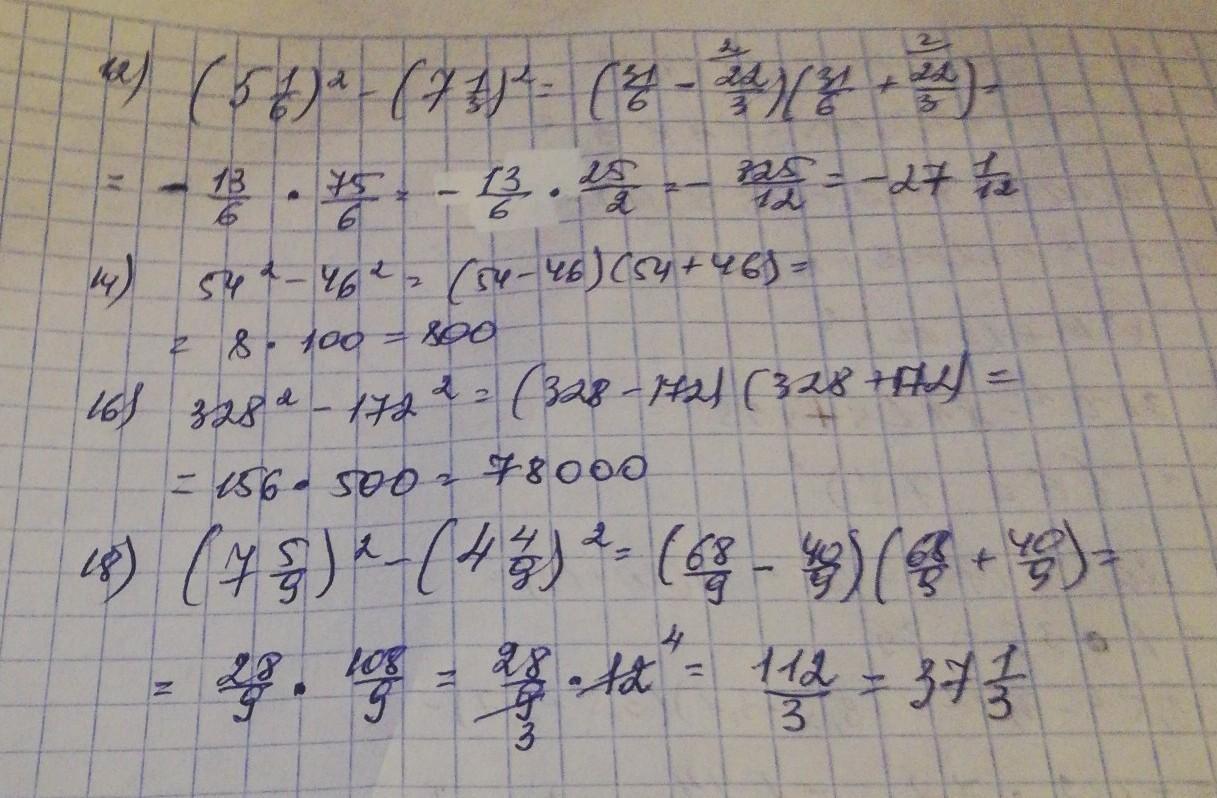 12) (5 1/6)² - (7 1/3)² = (31/6 - 22/3 ²)(31/6 + 22/3 ²) =
= - 13/6 · 75/6 = - 13/6 · 25/2 = - 325/12 = -27 1/12
14) 54² - 46² = (54 - 46)(54 + 46) =
= 8 · 100 = 800
16) 328² - 172² = (328 - 172)(328 + 172) =
= 156 · 500 = 78000
18) (7 5/9)² - (4 4/9)² = (68/9 - 40/9)(68/9 + 40/9) =
= 28/9 · 108/9 = 28/9 · 12 ⁴ = 112/3 = 37 1/3
3